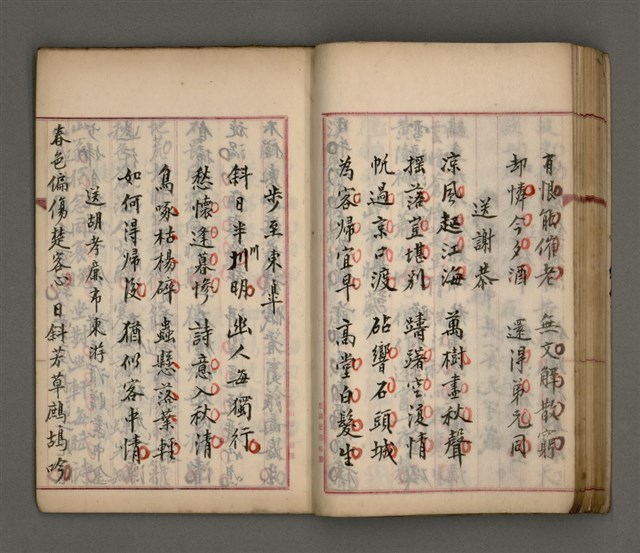 有恨節催老　無文解散窮
却憐今夕酒　還得弟兄同
送謝恭
凉風起江海　萬樹盡秋聲
搖落豈堪別　躊躇空復情
帆過京口渡　砧響石頭城
為客歸宜早　高堂白髮生
步至東皐
斜日半川明　幽人每獨行
愁懷逢暮慘　詩意入秋清
鳥啄枯楊碎　蟲懸落葉輕
如何得歸後　猶似客中情
送胡孝廉市東游
春色偏傷楚客心　日斜芳草鷓鴣吟